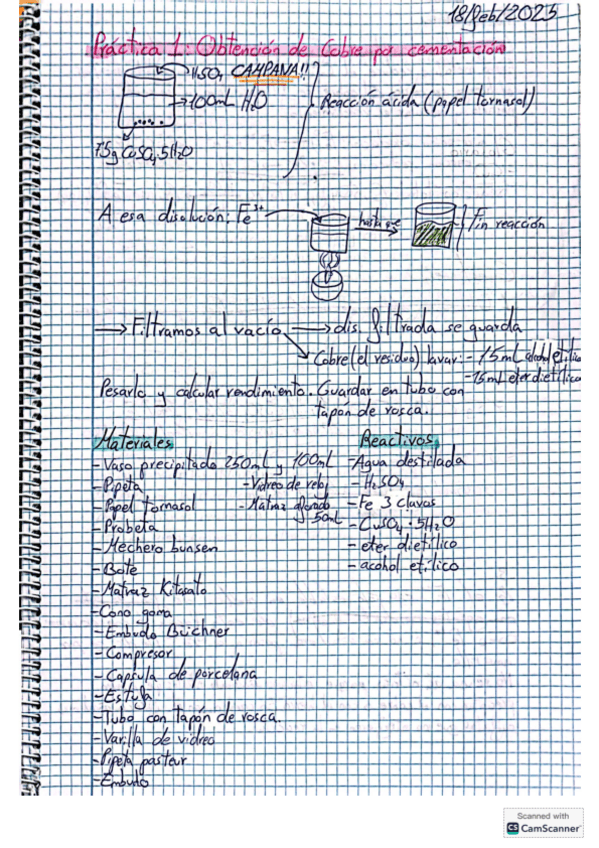 18/Feb/2025
Práctica 1: Obtención de Cobre por cementación
H2SO4 CAMPANA!!
100mL H2O
Reacción ácida (papel tornasol)
7.5g CuSO4 5H2O
A esa disolución: Fe3+
hasta que
Fin reacción
→ Filtramos al vacío → dis. filtrada se guarda
Cobre (el residuo) lavar: - 15mL alcohol etílico
- 15mL eter dietílico
Pesarlo y calcular rendimiento. Guardar en tubo con
tapon de rosca.
Materiales
Reactivos
- Vaso precipitado 250mL y 100mL
- Agua destilada
- Pipeta
- Vidreo de reloj
- H2SO4
- Papel tornasol
- Matraz aforado
50mL
- Fe 3 clavos
- Probeta
- CuSO4 · 5H2O
- Mechero bunsen
- eter dietílico
- Bote
- acohol etílico
- Matraz Kitasato
- Cono goma
- Embudo Büchner
- Compresor
- Capsula de porcelana
- Estufa
- Tubo con tapón de rosca.
- Varilla de vidreo
- Pipeta pasteur
- Embudo
Scanned with
CS CamScanner